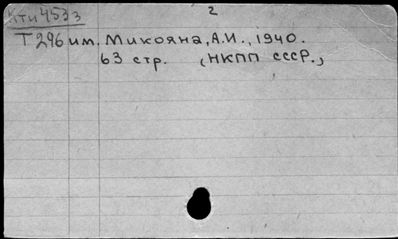 КТИ4533 2
Т296 им. Микояна, А.И., 1940.
63 стр. (НКПП СССР.)